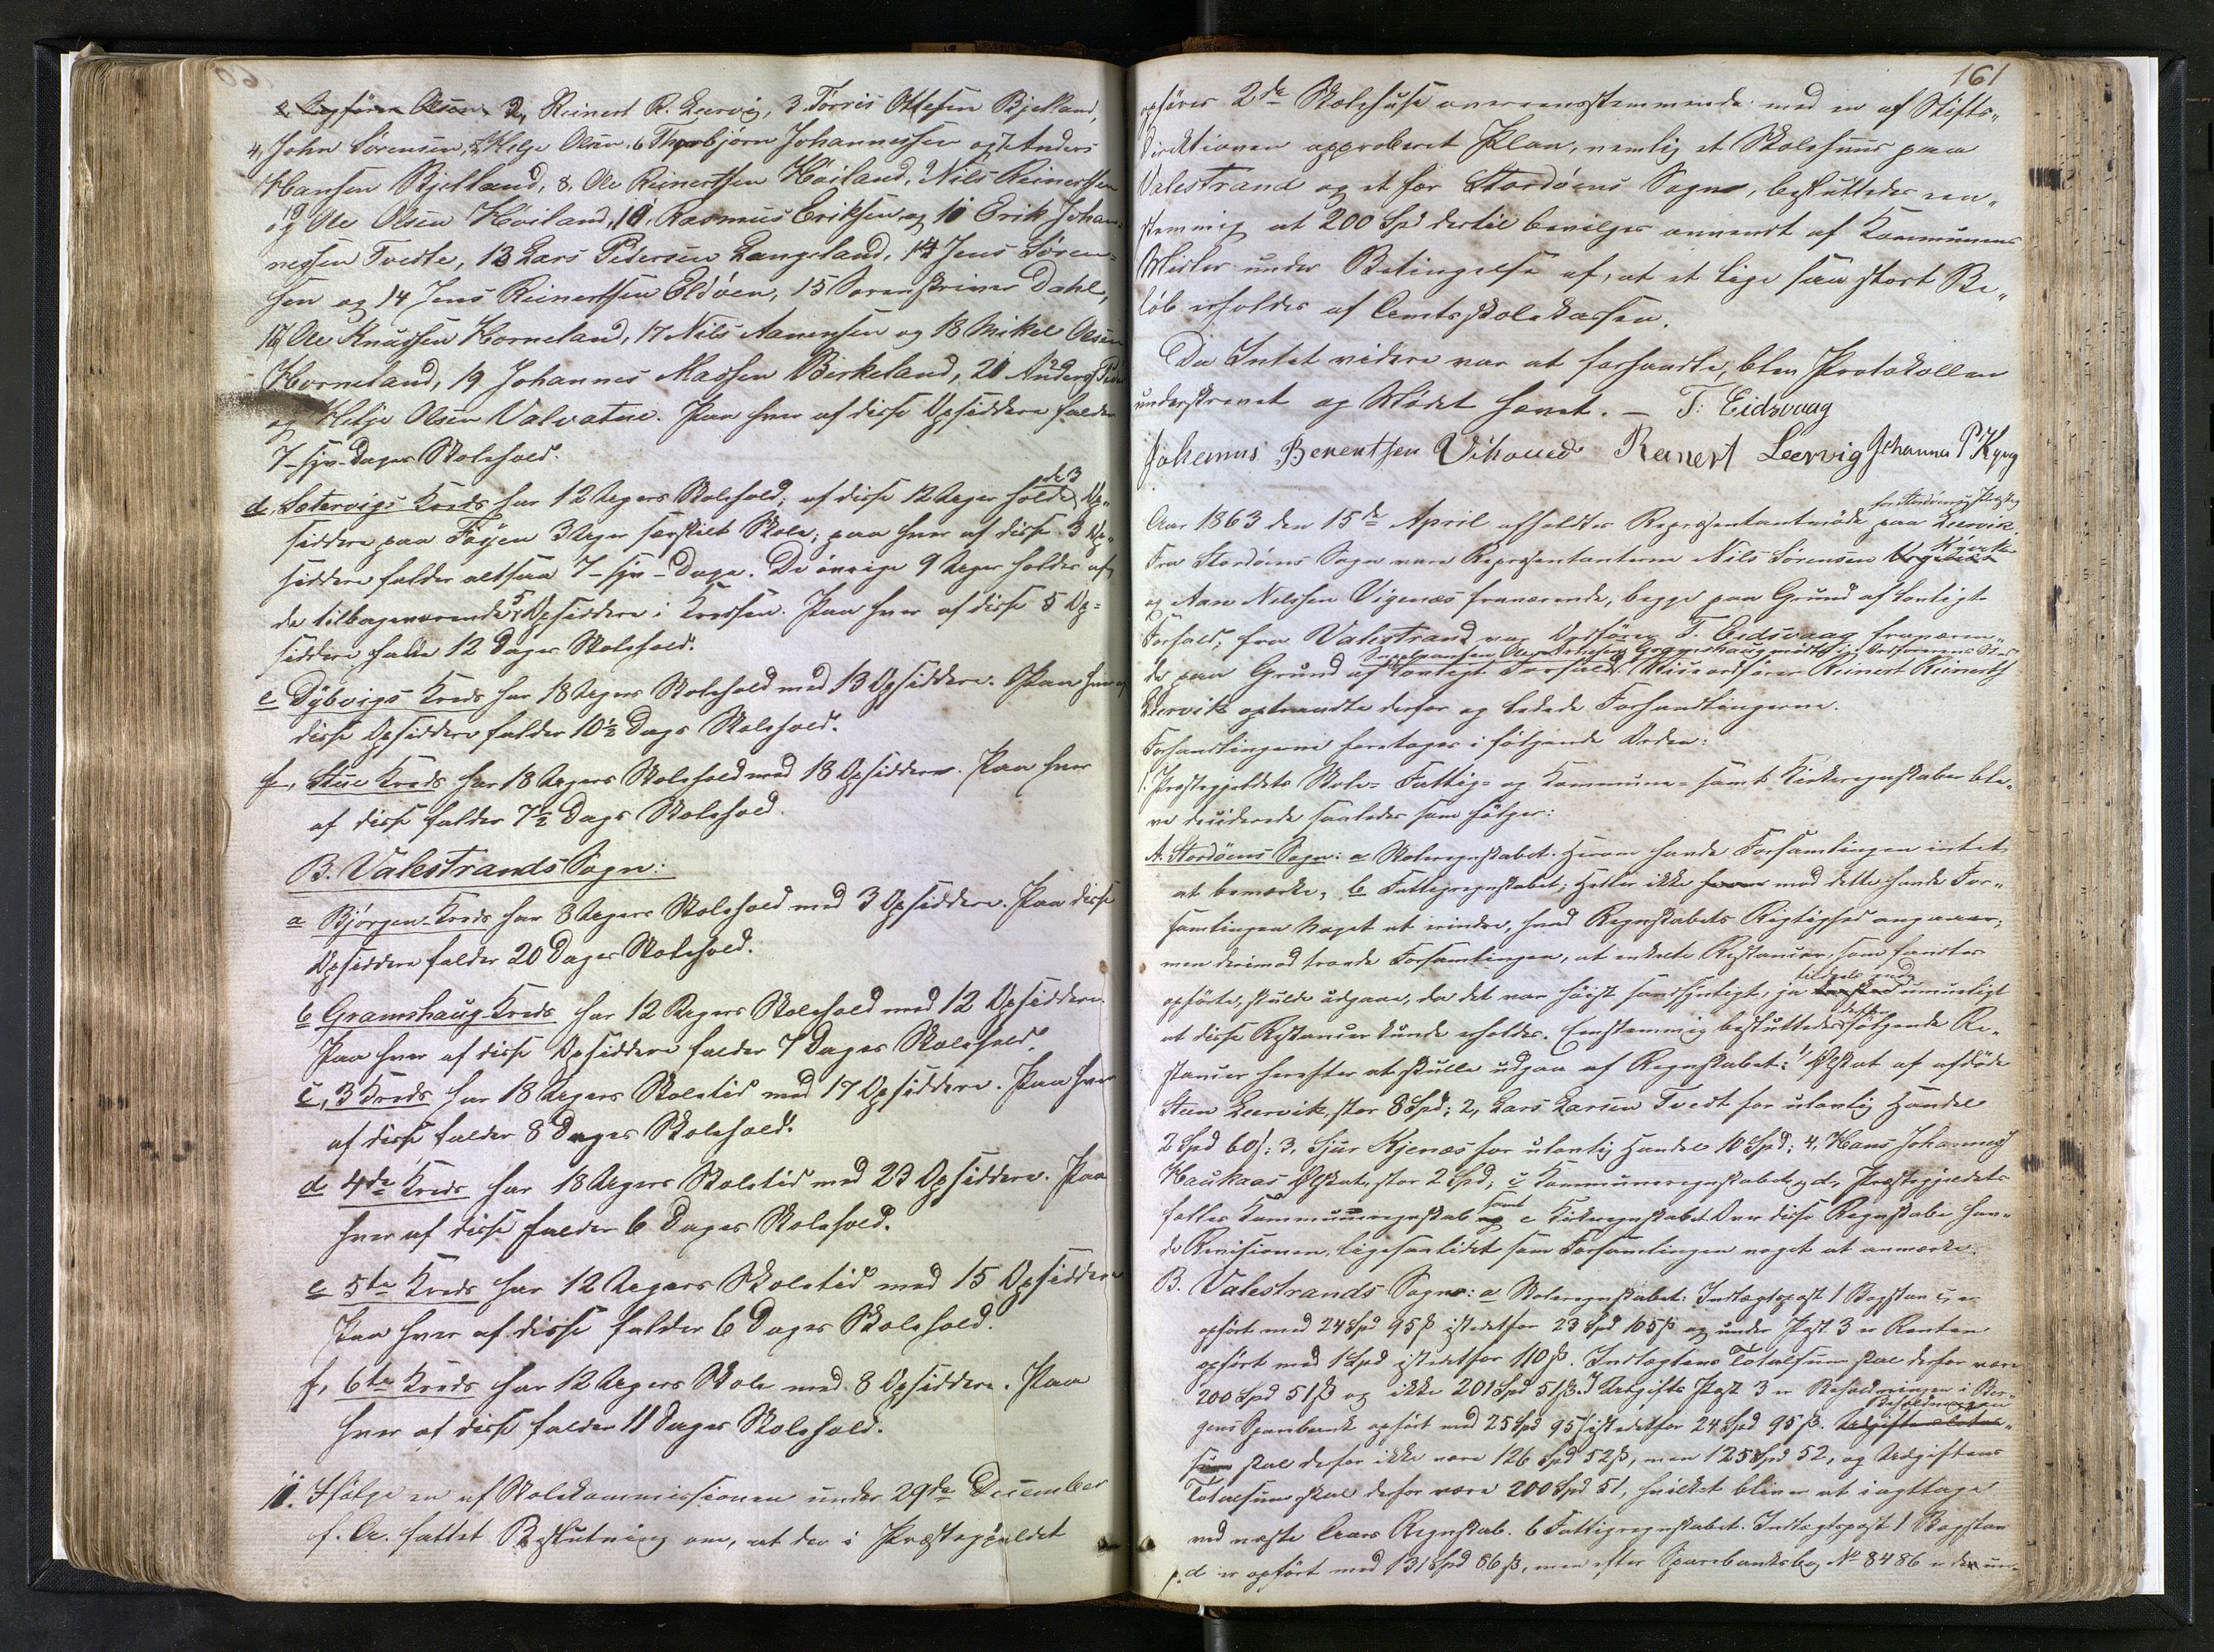 2, Reinert R. Leervig, 3. Torris Ottesen Bjelland,
4, John Sørensen, Helge Olsen, 6 Thorbjørn Johannessen og 7 Anders
Hansen Bjelland, 8, Ole Reinertsen Høiland, 9 Nils Reinertsen
og Ole Olsen Høiland, 10, Rasmus Eriksen og 11 Erik Johan-
nessen Tvedte, 13 Lars Pedersen Langeland, 14 Jens Søren-
sen og 14 Jens Reinertsen Eldøen, 15 Sorenskriver Dahl,
16 Ole Knudsen Horneland, 17 Nils Aanensen og 18 Mikel Olsen
Horneland, 19 Johannes Massen Birkeland, 20 Anders
og Helje Olsen Valvatne. Paa hver af disse Opsiddere falder
7 - syv - Dages Skolehold.
d, Sætervigs Kreds har 12 Ugers Skolehold; af disse 12 Uger holde de 3 Op-
siddere paa Føyen 3 Uger særskilt Skole; paa hver af disse 3 Op-
siddere falder altsaa 7 - syv - Dage. De øvrige 9 Uger holdes af
de tilbageværende 5 Opsiddere i Kredsen. Paa hver af disse 5 Op-
siddere falde 12 Dages Skolehold.
e Dybvigs Kreds har 18 Ugers Skolehold med 13 Opsiddere. Paa hver af
disse Opsiddere falder 10½ Dags Skolehold.
f, Stue Kreds har 18 Ugers Skolehold med 18 Opsiddere. Paa hver
af disse falder 7½ Dags Skolehold.
B. Valestrands Sogn:
a Bjørgen-Kreds har 8 Ugers Skolehold med 3 Opsiddere. Paa disse
Opsiddere falder 20 Dages Skolehold.
b Gramshaug-Kreds har 12 Ugers Skolehold med 12 Opsiddere.
Paa hver af disse Opsiddere falder 7 Dages Skolehold.
c, 3 Kreds har 18 Ugers Skoletid med 17 Opsiddere. Paa hver
af disse falder 8 Dages Skolehold.
d 4de Kreds har 18 Ugers Skoletid med 23 Opsiddere. Paa
hver af disse falder 6 Dages Skolehold.
e 5te Kreds har 12 Ugers Skoletid med 15 Opsiddere
Paa hver af disse falder 6 Dages Skolehold.
f, 6te Kreds har 12 Ugers Skole med 8 Opsiddere. Paa
hver af disse falder 11 Dages Skolehold.
11. Ifølge en af Skolekommissionen under 29de December
f. A. fattet Beslutning om, at der i Præstegjeldet
161
opføres 2de Skolehuse overensstemmende med en af Stifts-
direktionen approberet Plan, nemlig et Skolehuus paa
Valestrand og et for Stordøens Sogn, besluttedes een-
stemmig at 200 Spd dertil bevilges anvendt af Kommunens
Midler under Betingelse af, at et lige saa stort Be-
løb erholdes af Amtsskolekassen.
Da Intet videre var at forhandle, blev Protokollen
underskrevet og Mødet hævet. - T: Eidsvaag
Johannes Berentsen Vihoued Reinert Leervig Johannes P Kyvg
for Stordøens Præsteg
Aar 1863 den 15de April afholdtes Repræsentantmøde paa Leervik.
Fra Stordøens Sogn vare Repræsentanterne Nils Sørensen
og Aan Nilssen Vigenæs fraværende, begge paa Grund af lovligt
Forfald; fra Valestrand var Ordfører T. Eidsvaag fraværen-
Suppleanten Ole Gramshaug mødte i Ordførerens Sted
de paa Grund af lovligt Forfald. Viceordfører Reinert Reinerts
Leervik optraadte derfor og ledede Forhandlingerne.
Forhandlingerne foretoges i følgende Orden:
1. Præstegjeldets Skole- Fattig- og Kommune- samt Kirkeregnskaber ble-
ve deciderede saaledes som følger:
A. Stordøens Sogn: a Skoleregnskabet. Herom havde Forsamlingen intet
at bemærke, b Fattigregnskabet; Heller ikke mod dette havde For-
samlingen Noget at erindre, hvad Regnskabets Rigtighed angaaer;
men derimod troede Forsamlingen, at enkelte Restancer, som fandtes
opførte, skulde udgaae, da det var høist sandsynligt, ja umueligt
at disse Restancer kunde erholdes. Eenstemmig besluttedes derfor følgende Re-
stancer herefter at skulle udgaa af Regnskabet: 1, Ølskat af afdøde
Steen Leervik, stor 8 Spd; 2, Lars Larsen Tvedt for ulovlig Handel
2 Spd 60 ß; 3, Sjur Kjenæs for ulovlig Handel 10 Spd; 4, Hans Johannes
Haukaas Ølskat, stor 2 Spd; c Kommuneregnskabet og d, Præstegjeldets
fælles Kommuneregnskab samt e Kirkeregnskabet. Over disse Regnskabe hav-
de Revisionen, ligesaalidet som Forsamlingen noget at anmærke.
B. Valestrands Sogn: a Skoleregnskabet: Indtægtspost 1 Bogstav c, er
opført med 24 Spd 95 ß istedetfor 23 Spd 105 ß og under Post 3 er Renten
opført med 1 Spd istedetfor 110 ß. Indtægtens Totalsum skal derfor være
200 Spd 51 ß og ikke 201 Spd 51 ß. I Udgifts Post 3 er Beholdningen i Ber-
gens Sparebank opført med 25 Spd 95 ß istedetfor 24 Spd 95 ß. Beholdningen
skal derfor ikke være 126 Spd 52 ß, men 125 Spd 52, og Udgiftens
Totalsum skal derfor være 200 Spd 51, hvilket bliver at iagttage
ved næste Aars Regnskab. b Fattigregnskabet. Indtægtspost 1 Bogstav
d er opført med 131 Spd 66 ß, men efter Sparebanksbog No 8486 er den